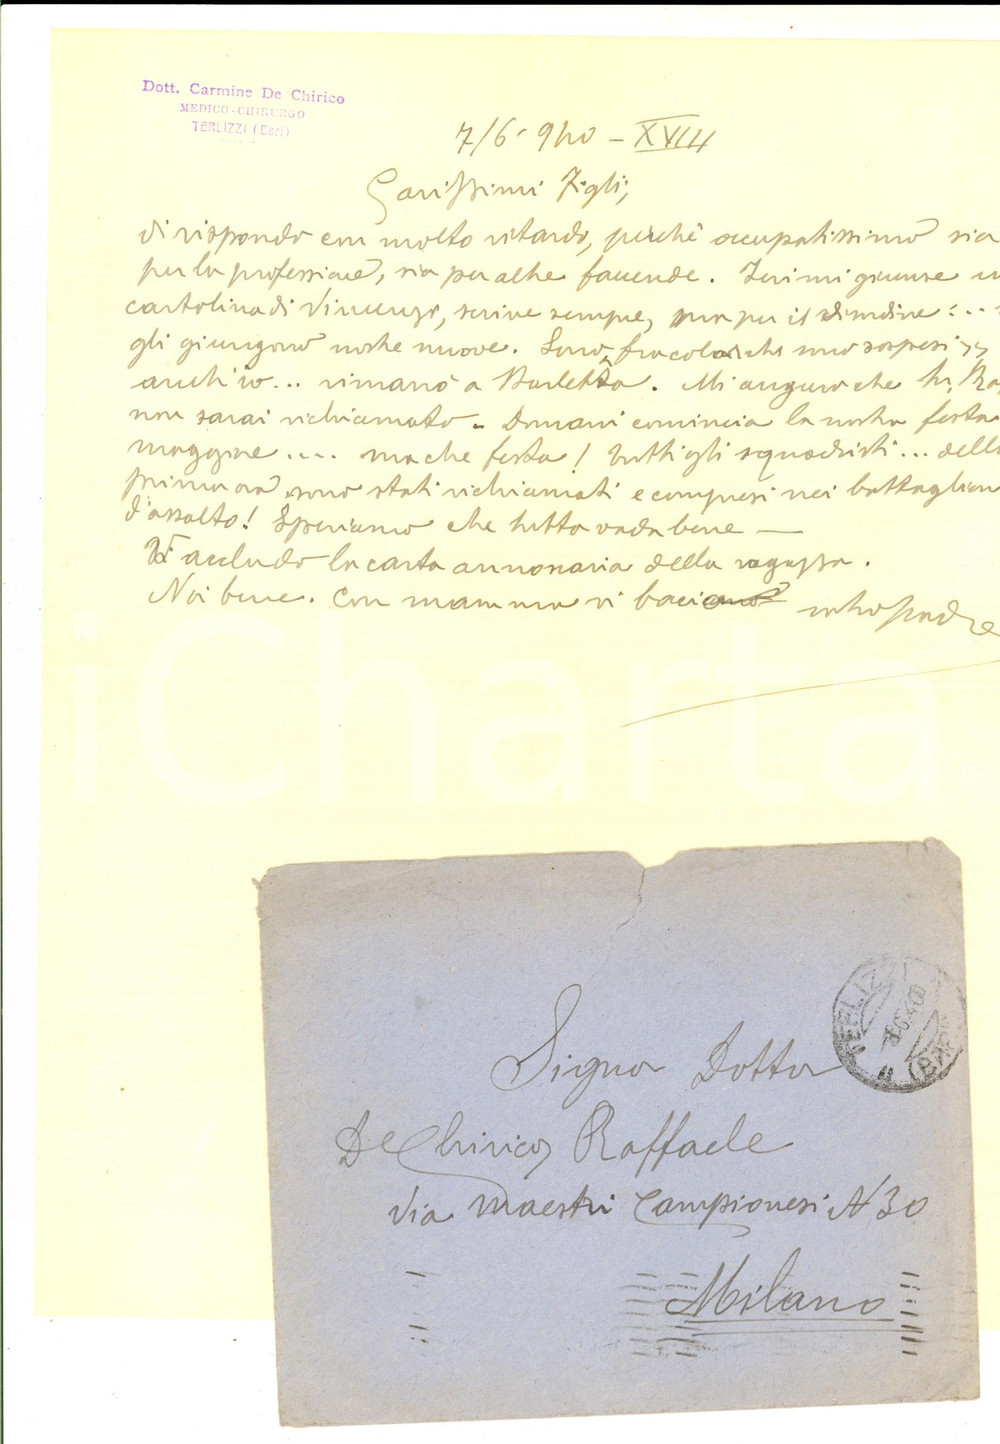 Dott. Carmine De Chirico
MEDICO-CHIRURGO
TERLIZZI (Bari)
7/6-940 - XVIII
Carissimi Figli,
Vi rispondo con molto ritardo, perchè occupatissimo sia
per la professione, sia per altre faccende. Ieri mi giunse
cartolina di Vincenzo, scrive sempre, ma per
gli giungono nostre nuove. Sono
anch'io... rimano a Barletta. Mi auguro che tu,
non sarai richiamato. Domani comincia la nostra festa
maggiore .... ma che festa! Tutti gli squadristi... della
prima ora sono stati richiamati e compresi nei battaglioni
d'assalto! Speriamo che tutto vada bene —
Vi accludo la carta annonaria della ragazza.
Noi bene. Con mamma vi bacio vostro padre
iCharta
TERLIZZI (BARI)
Signor Dottor
De Chirico Raffaele
Via Maestri Campionesi N 30
Milano